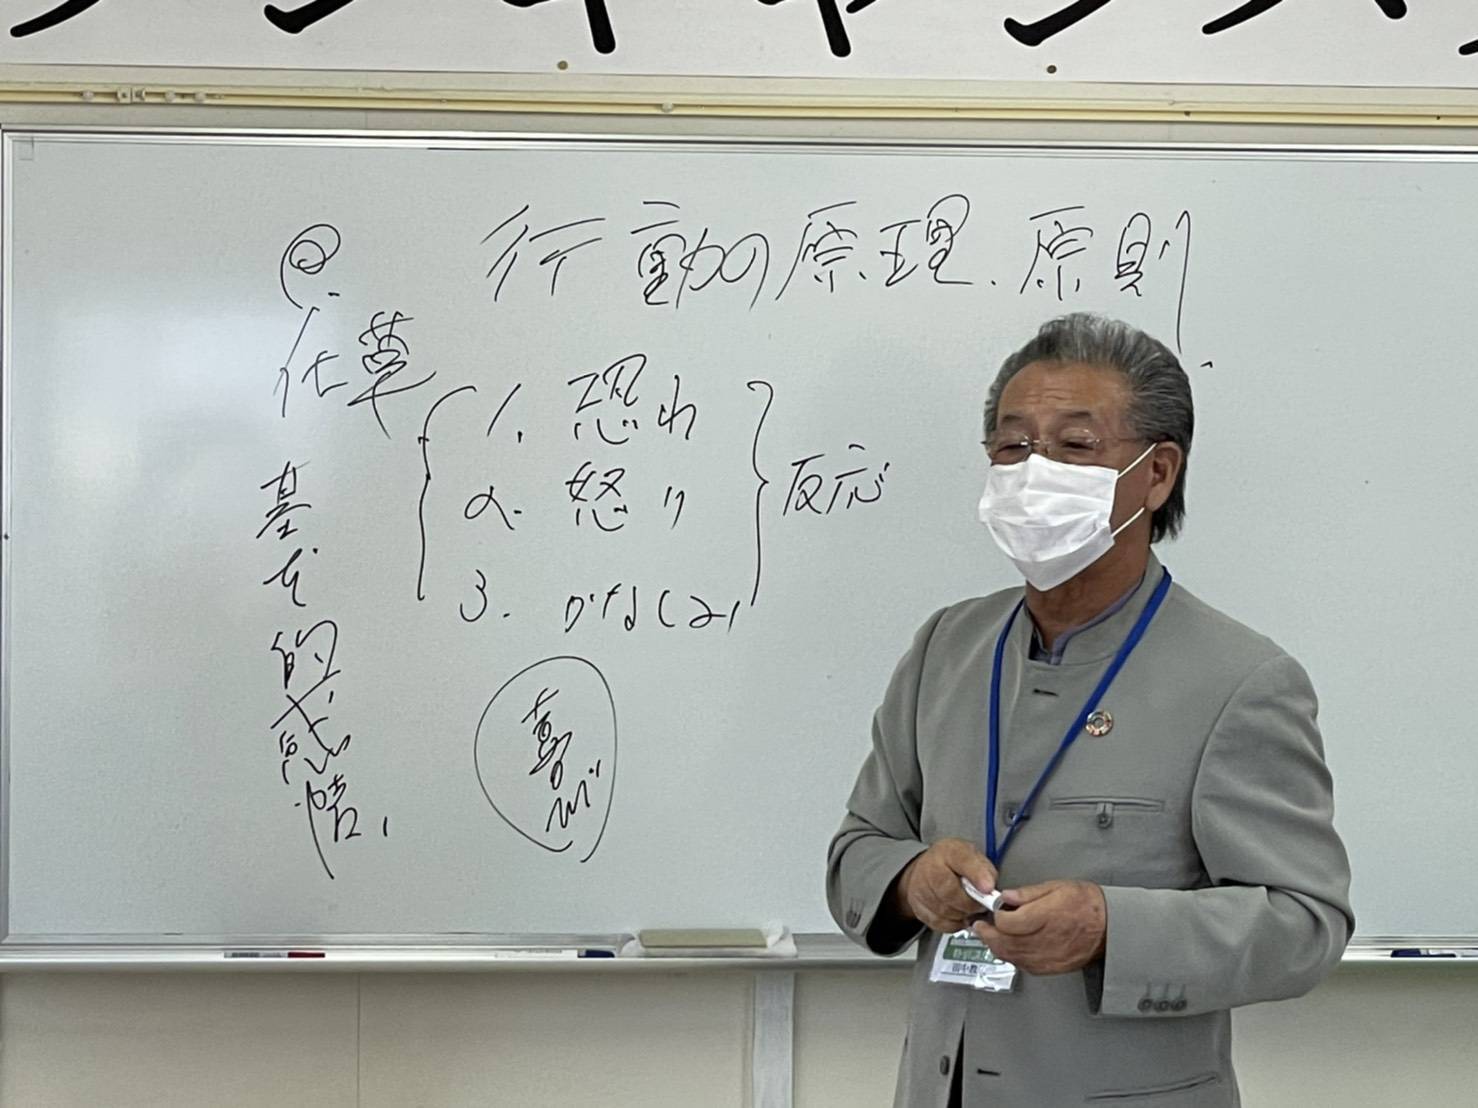 行動の原理、原則
1. 恐れ
2. 怒り
3. かなしみ
反応
基本的感情
喜び